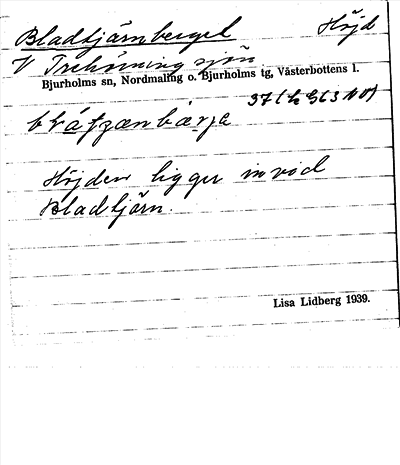 Bladtjärnberget Höjd
V Trehörningsjön
Bjurholms sn, Nordmaling o. Bjurholms tg, Västerbottens l.
Höjden ligger invid
Bladtjärn.
Lisa Lidberg 1939.